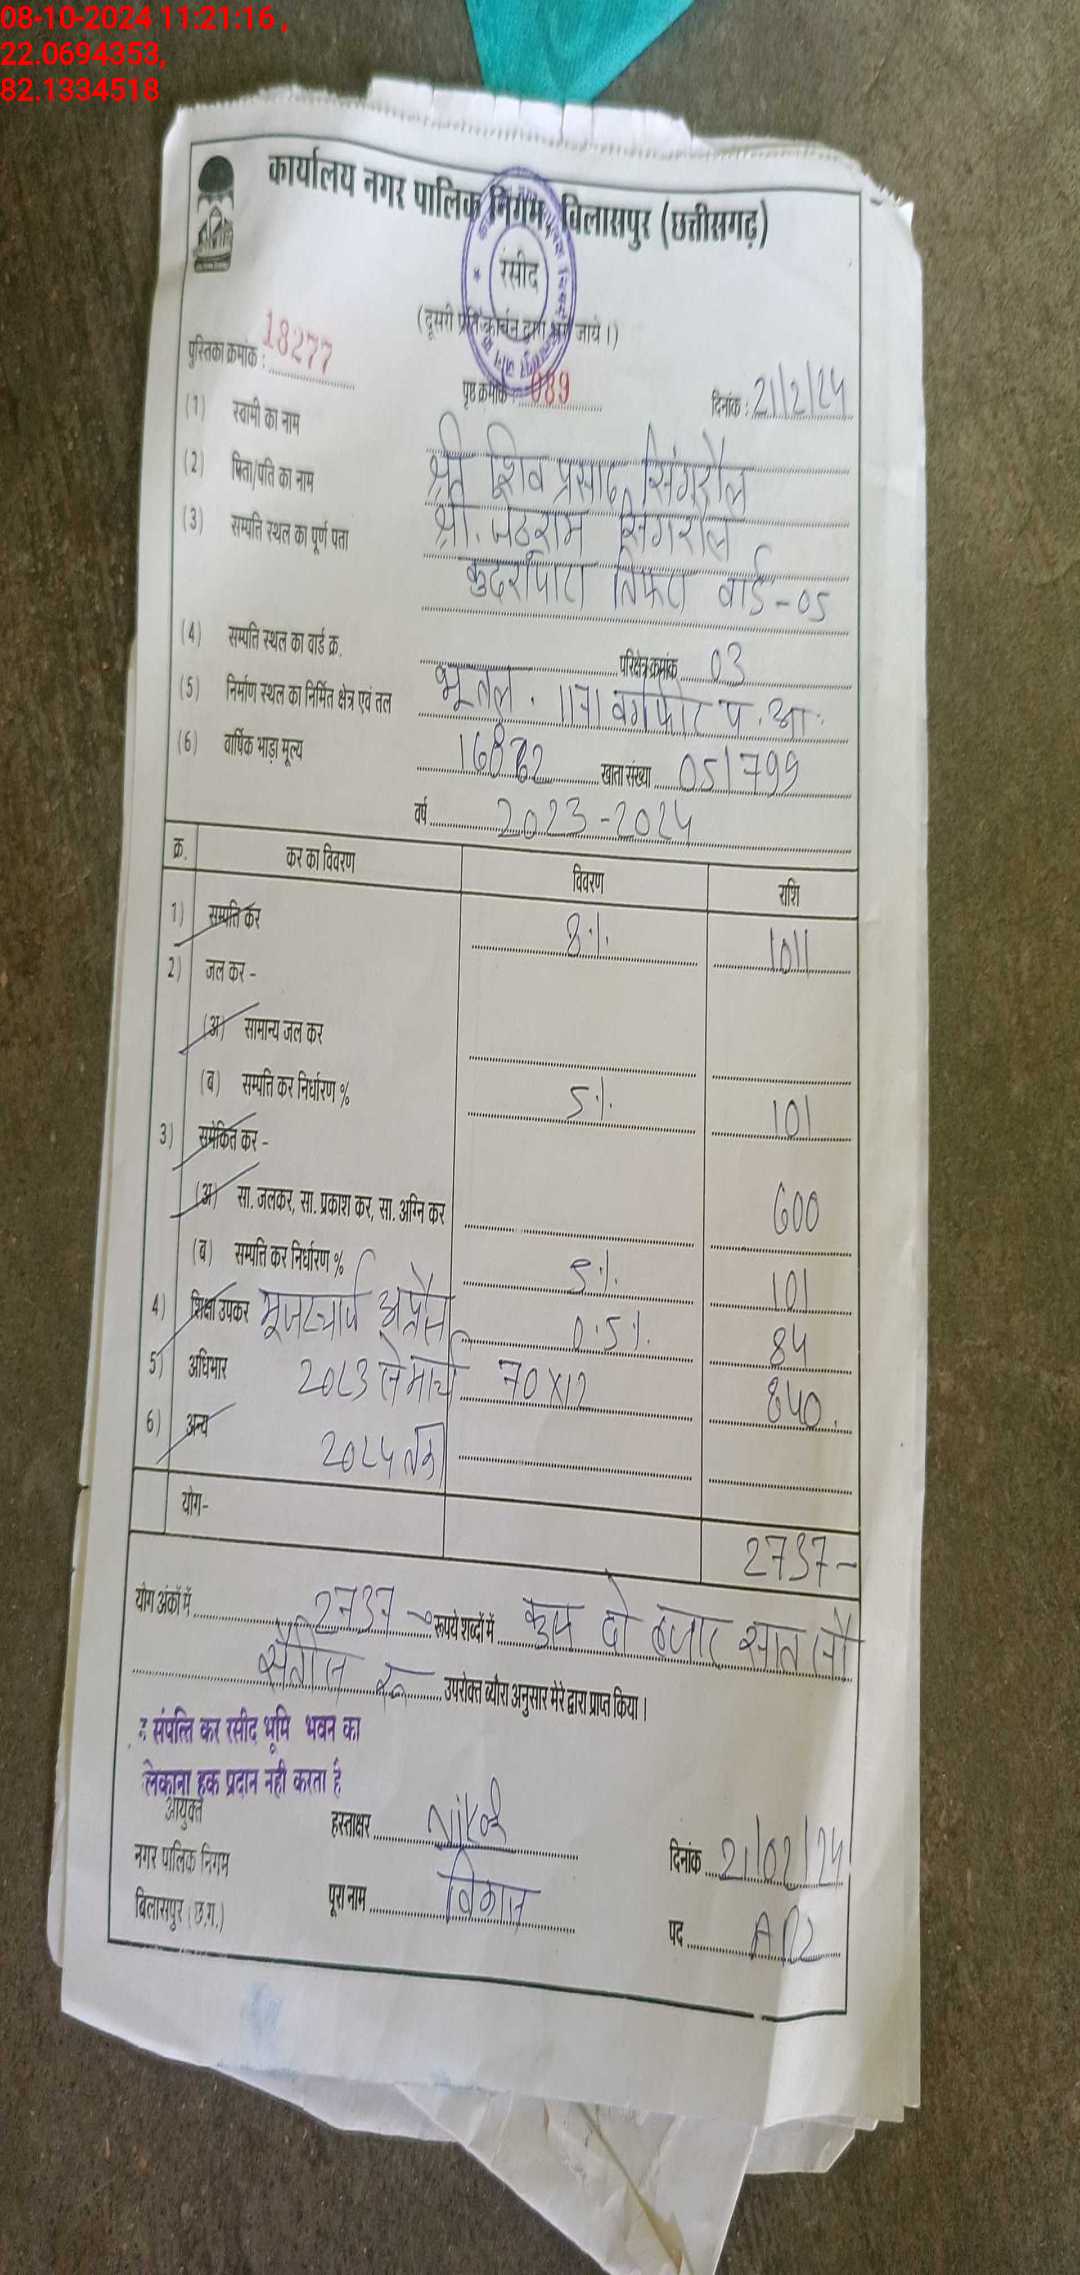 08-10-2024 11:21:16 ,
22.0694353,
82.1334518
कार्यालय नगर पालिक निगम, बिलासपुर (छत्तीसगढ़)
रसीद
(दूसरी प्रति कार्बन द्वारा भरी जाये।)
पुस्तिका क्रमांक : 18277
पृष्ठ क्रमांक : 089 दिनांक : 21/2/24
(1) स्वामी का नाम श्री शिव प्रसाद सिंगरौल
(2) पिता/पति का नाम श्री. जेठूराम सिंगरौल
(3) सम्पति स्थल का पूर्ण पता तिफरा वार्ड-05
(4) सम्पति स्थल का वार्ड क्र. परिक्षेत्र क्रमांक 03
(5) निर्माण स्थल का निर्मित क्षेत्र एवं तल भूतल . 1171 वर्गफीट प . आ .
(6) वार्षिक भाड़ा मूल्य खाता संख्या 051799
वर्ष 2023-2024
क्र. कर का विवरण विवरण राशि
1) सम्पति कर 8% 1011
2) जल कर -
(अ) सामान्य जल कर
(ब) सम्पति कर निर्धारण % 5% 101
3) समेकित कर -
(अ) सा. जलकर, सा. प्रकाश कर, सा. अग्नि कर 600
(ब) सम्पति कर निर्धारण % 5% 101
4) शिक्षा उपकर यूजरचार्ज अप्रैल 0.5% 84
5) अधिभार 2023 से मार्च 70x12 840.
6) अन्य 2024 तक
योग- 2737-
योग अंकों में 2737 रूपये शब्दों में कुल दो हजार सात सौ
सैंतीस रू उपरोक्त ब्यौरा अनुसार मेरे द्वारा प्राप्त किया।
संपत्ति कर रसीद भूमि भवन का
हक प्रदान नही करता है
आयुक्त
हस्ताक्षर दिनांक 21/02/24
नगर पालिक निगम
पूरा नाम विकास
बिलासपुर (छ.ग.)
पद